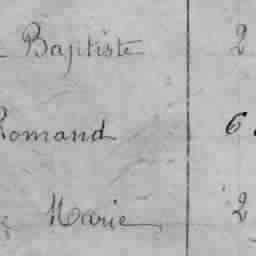 Baptiste 2
Romand 6
Marie 2